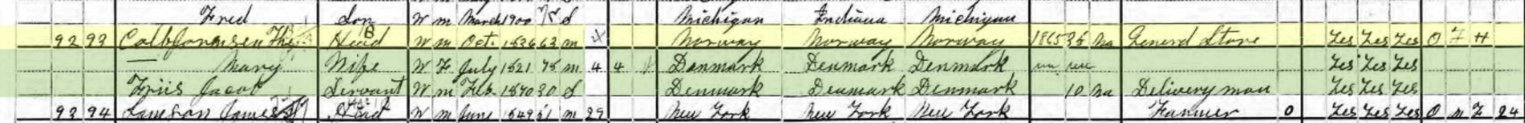 Fred Son W m March 1900 S Michigan Indiana Michigan
92 93 Head W m Oct. 1836 63 m Norway Norway Norway 1865 35 Na General Store Yes Yes Yes O F H
— Mary Wife W F July 4 4 Denmark Denmark Denmark Yes Yes Yes
Friis Jacob Servant W m Feb. 1870 30 S Denmark Denmark Denmark 10 Na Delivery man Yes Yes Yes
93 94 James Head W m June 1849 51 m 29 New York New York New York Farmer 0 Yes Yes Yes O m F 24